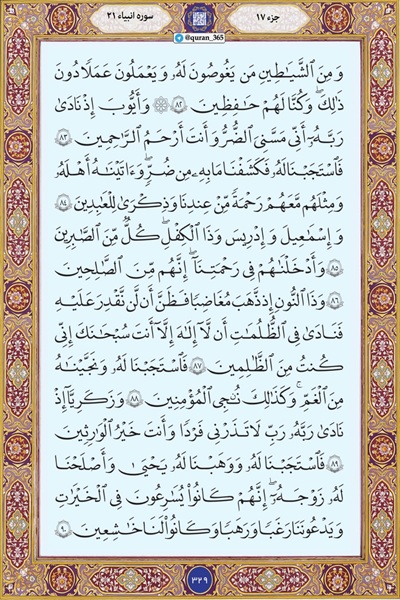 جزء ۱۷
@quran_365
سوره انبیاء ۲۱
وَمِنَ الشَّيَاطِينِ مَن يَغُوصُونَ لَهُ وَيَعْمَلُونَ عَمَلًا دُونَ
ذَٰلِكَ ۖ وَكُنَّا لَهُمْ حَافِظِينَ ﴿٨٢﴾ ۞ وَأَيُّوبَ إِذْ نَادَىٰ
رَبَّهُ أَنِّي مَسَّنِيَ الضُّرُّ وَأَنتَ أَرْحَمُ الرَّاحِمِينَ ﴿٨٣﴾
فَاسْتَجَبْنَا لَهُ فَكَشَفْنَا مَا بِهِ مِن ضُرٍّ ۖ وَءَاتَيْنَاهُ أَهْلَهُ
وَمِثْلَهُم مَّعَهُمْ رَحْمَةً مِّنْ عِندِنَا وَذِكْرَىٰ لِلْعَابِدِينَ ﴿٨٤﴾
وَإِسْمَاعِيلَ وَإِدْرِيسَ وَذَا الْكِفْلِ ۖ كُلٌّ مِّنَ الصَّابِرِينَ
﴿٨٥﴾ وَأَدْخَلْنَاهُمْ فِي رَحْمَتِنَا ۖ إِنَّهُم مِّنَ الصَّالِحِينَ
﴿٨٦﴾ وَذَا النُّونِ إِذ ذَّهَبَ مُغَاضِبًا فَظَنَّ أَن لَّن نَّقْدِرَ عَلَيْهِ
فَنَادَىٰ فِي الظُّلُمَاتِ أَن لَّا إِلَٰهَ إِلَّا أَنتَ سُبْحَانَكَ إِنِّي
كُنتُ مِنَ الظَّالِمِينَ ﴿٨٧﴾ فَاسْتَجَبْنَا لَهُ وَنَجَّيْنَاهُ
مِنَ الْغَمِّ ۚ وَكَذَٰلِكَ نُنجِي الْمُؤْمِنِينَ ﴿٨٨﴾ وَزَكَرِيَّا إِذْ
نَادَىٰ رَبَّهُ رَبِّ لَا تَذَرْنِي فَرْدًا وَأَنتَ خَيْرُ الْوَارِثِينَ
﴿٨٩﴾ فَاسْتَجَبْنَا لَهُ وَوَهَبْنَا لَهُ يَحْيَىٰ وَأَصْلَحْنَا
لَهُ زَوْجَهُ ۚ إِنَّهُمْ كَانُوا يُسَارِعُونَ فِي الْخَيْرَاتِ
وَيَدْعُونَنَا رَغَبًا وَرَهَبًا ۖ وَكَانُوا لَنَا خَاشِعِينَ ﴿٩٠﴾
۳۲۹